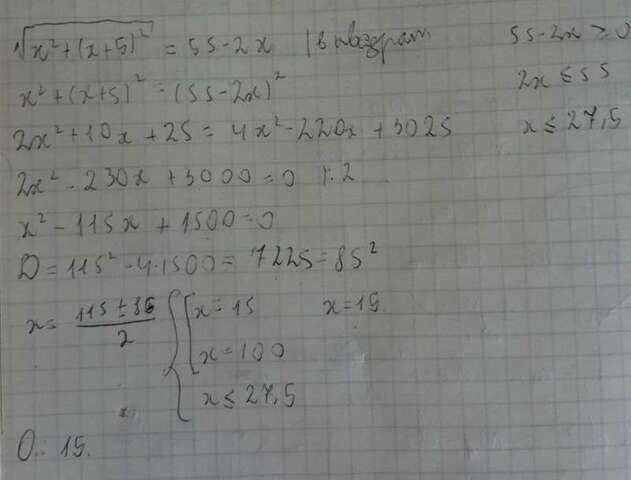 √(x²+(x+5)²) = 55-2x | в квадрат 55-2x ≥ 0
x²+(x+5)² = (55-2x)² 2x ≤ 55
2x²+10x+25 = 4x²-220x+3025 x ≤ 27,5
2x²-230x+3000=0 |:2
x²-115x+1500=0
D=115²-4·1500=7225=85²
x= (115±85)/2 {[x=15 x=15
x=100
x ≤ 27,5
О.: 15.